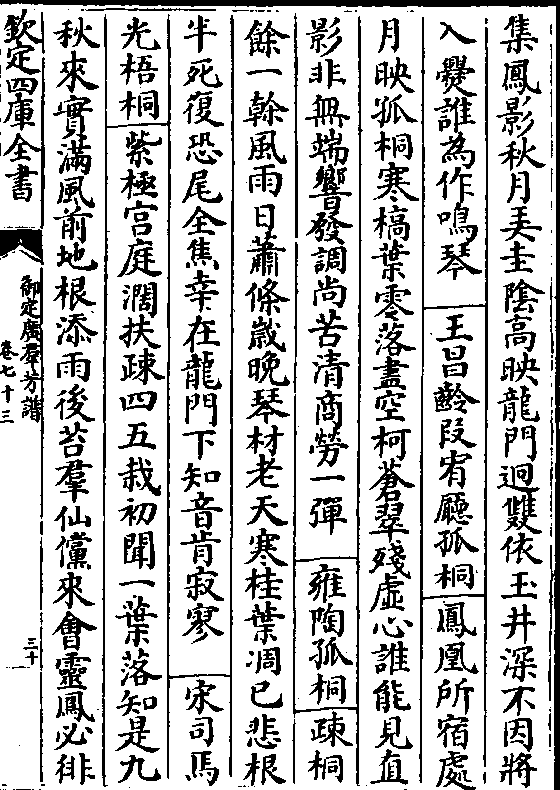 集鳳影秋月弄圭陰高映龍門迥雙依玉井深不因將
入㸑誰為作鳴琴 王昌齡段宥廳孤桐 鳳凰所宿處
月映孤桐寒槁葉零落盡空柯蒼翠殘虛心誰能見直
影非無端響發調尚苦清商勞一彈 雍陶孤桐 疎桐
餘一榦風雨日蕭條嵗晚琴材老天寒桂葉凋已悲根
半死復恐尾全焦幸在龍門下知音肯寂寥 宋司馬
光梧桐 紫極宮庭濶扶疎四五栽初聞一葉落知是九
秋來實滿風前地根添雨後苔羣仙儻來會靈鳳必徘
欽定四庫全書
御定廣羣芳譜
卷七十三
三十